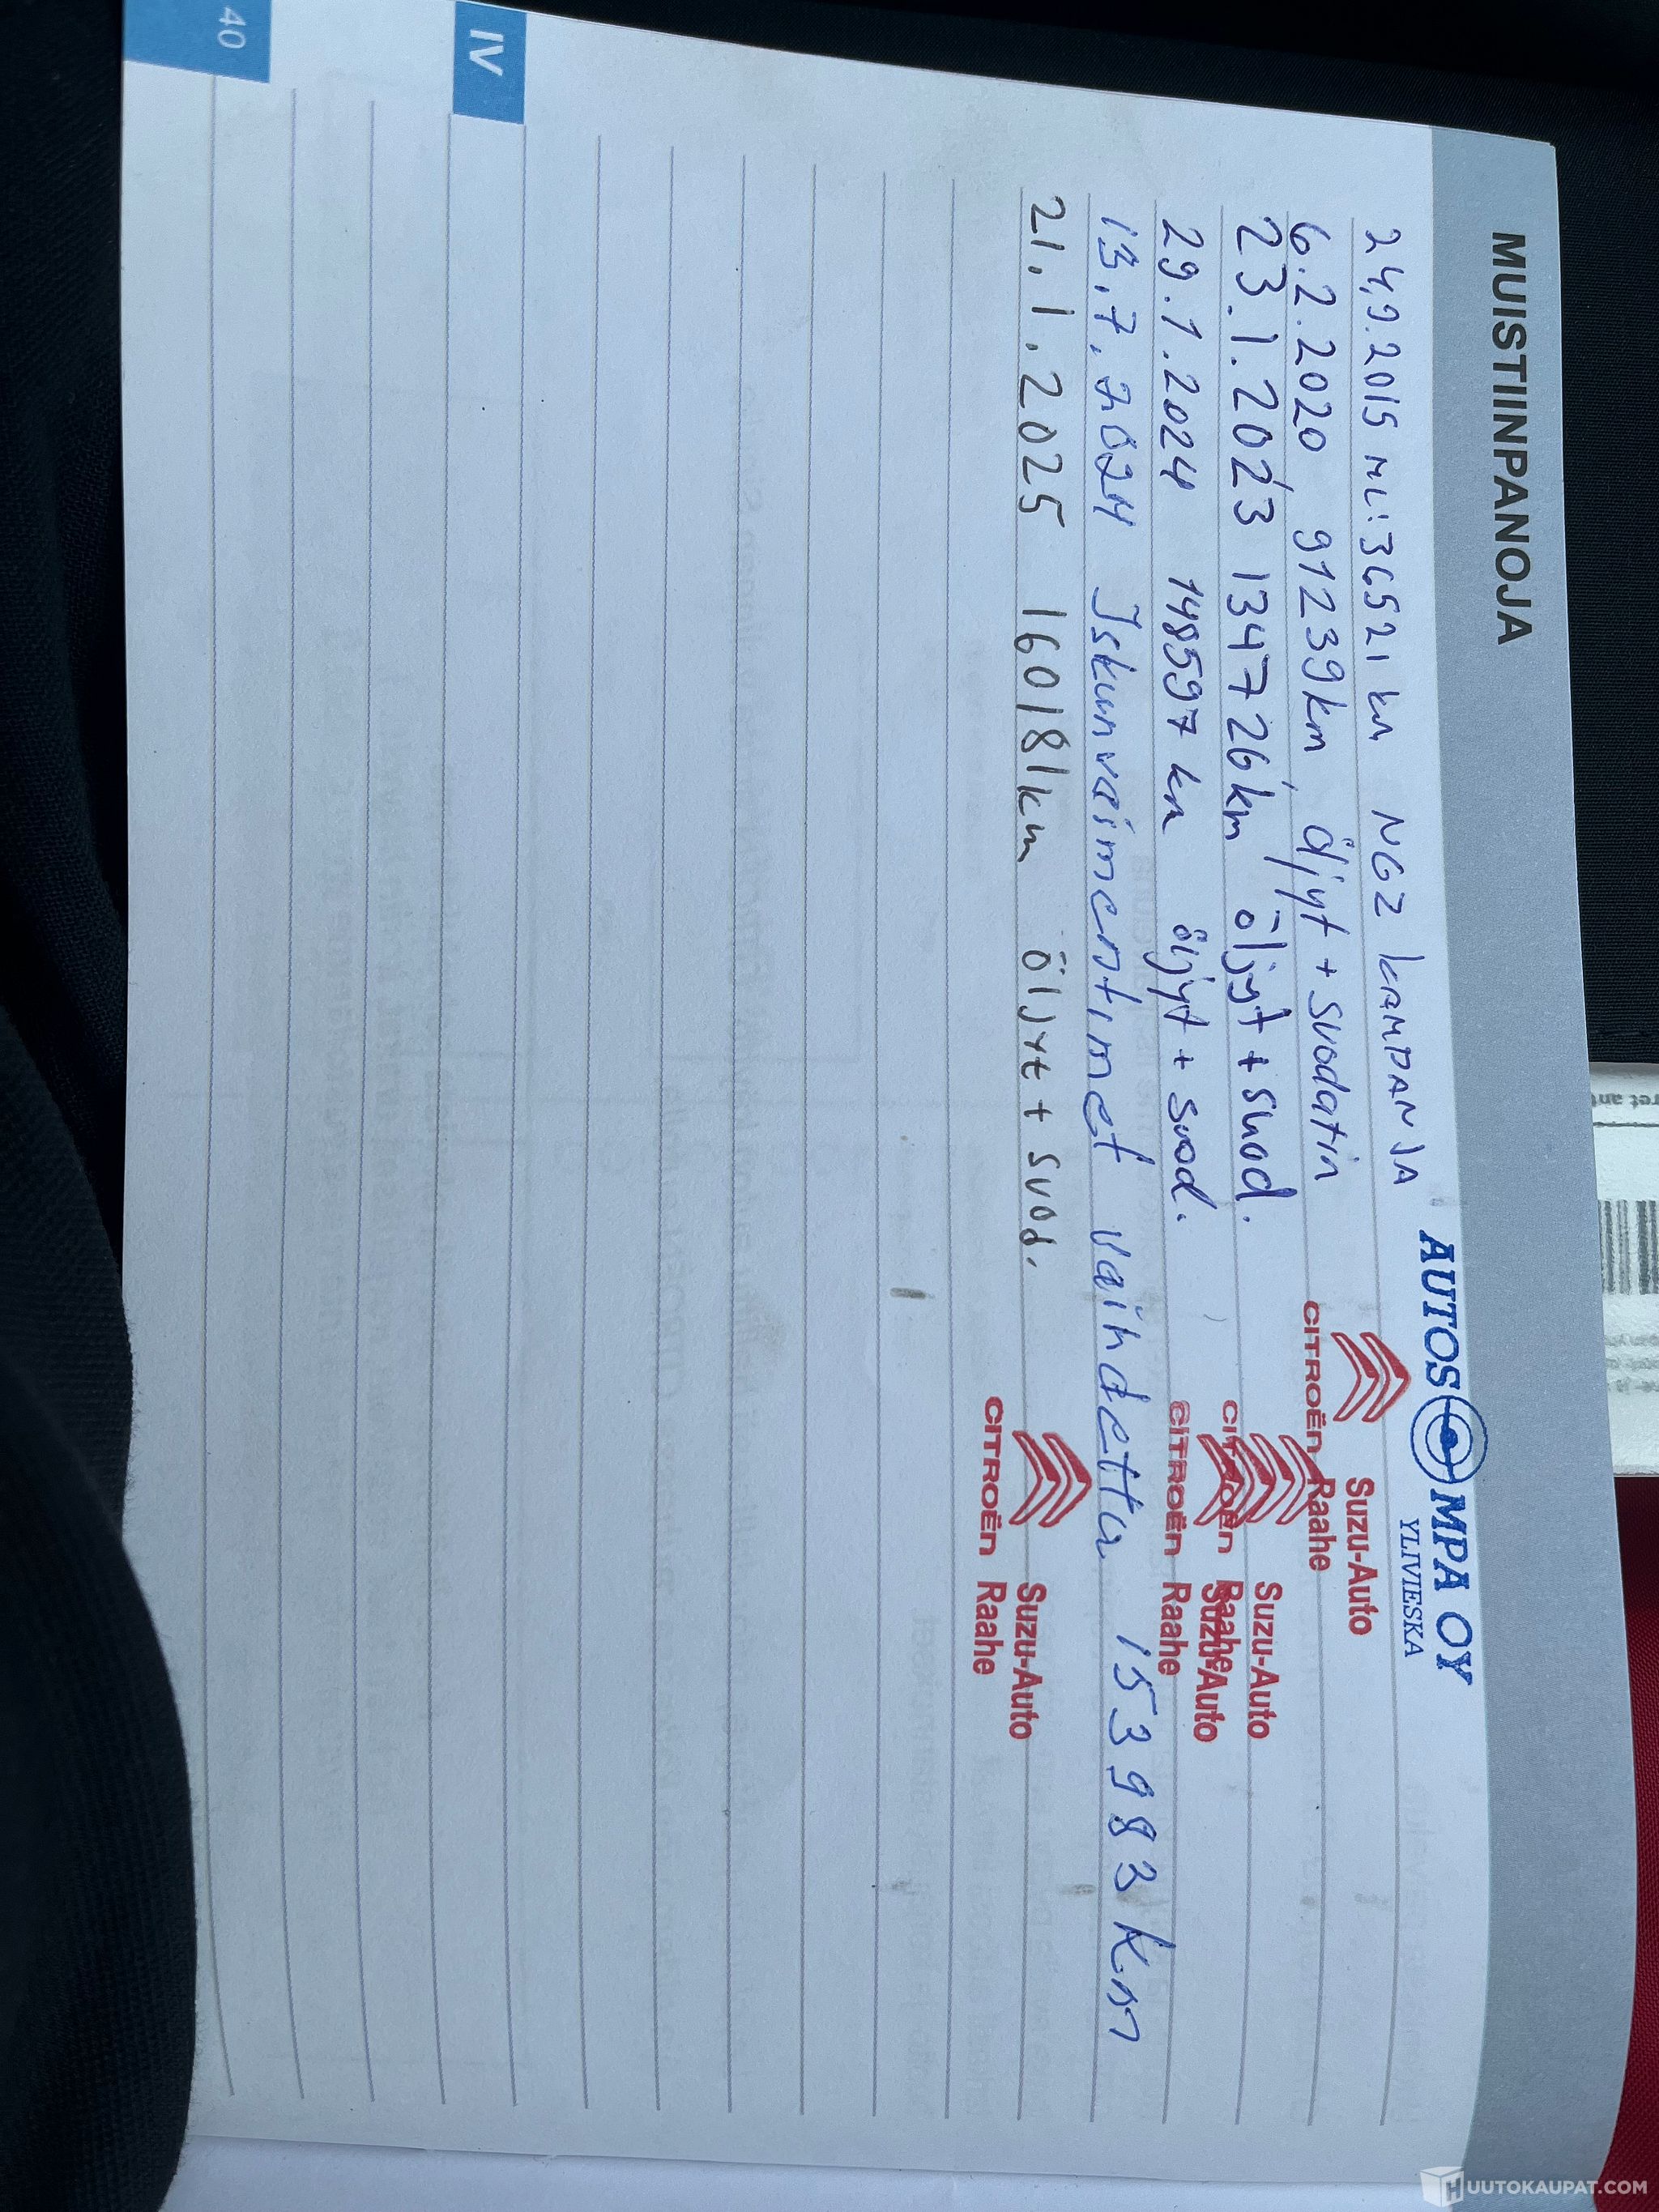 MUISTIINPANOJA
AUTOSOMPA OY
YLIVIESKA
24.9.2015 ML:36521 km NGZ KAMPANJA
6.2.2020 91239km Öljyt + suodatin
CITROËN Suzu-Auto Raahe
23.1.2023 134726km öljyt + suod.
CITROËN Suzu-Auto Raahe
29.1.2024 148597 km öljyt + suod.
CITROËN Suzu-Auto Raahe
13.7.2024 Iskunvaimentimet vaihdettu 153983 km
21.1.2025 160181km ÖLJYt + SUOd.
CITROËN Suzu-Auto Raahe
IV
40
HUUTOKAUPAT.COM